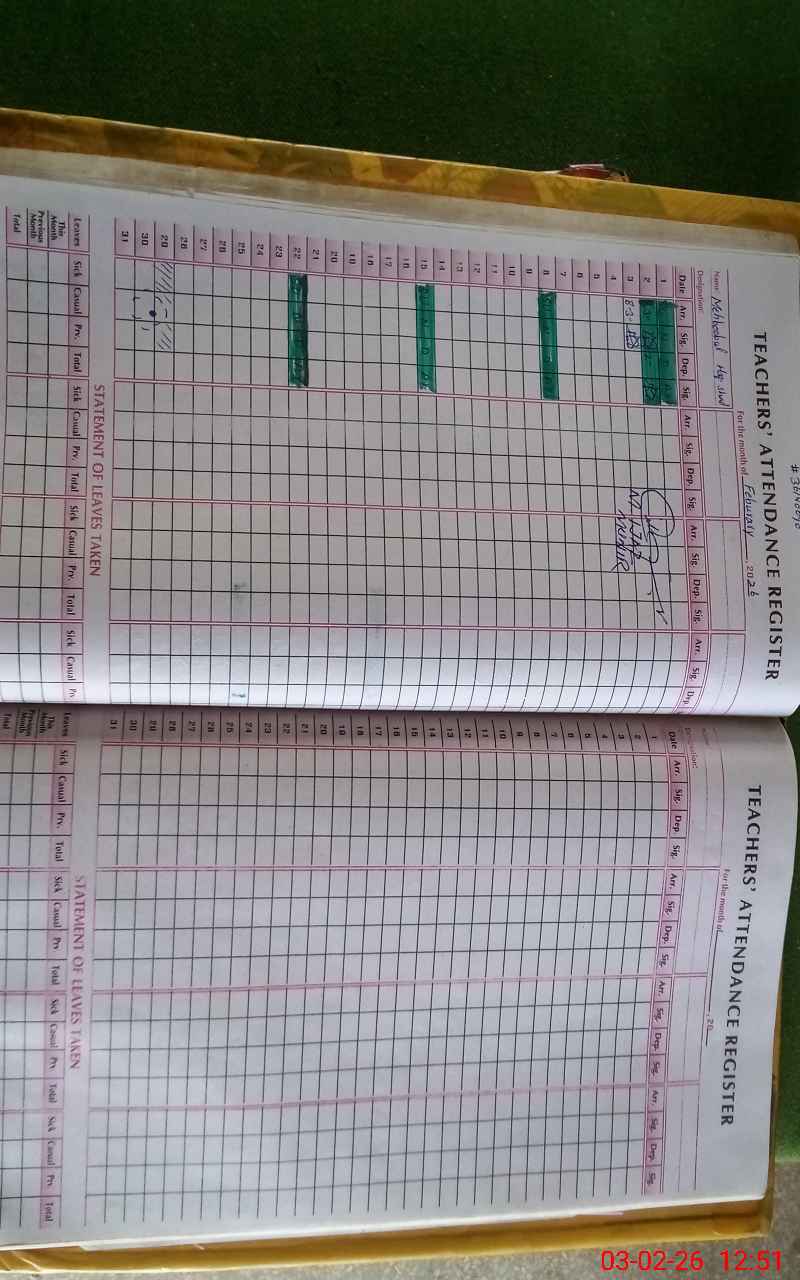 TEACHERS' ATTENDANCE REGISTER
Name: Mehboobul
Designation:
For the month of Feburary, 2026
Date Arr. Sig. Dep. Sig. Arr. Sig. Dep. Sig. Arr. Sig. Dep. Sig. Arr. Sig. Dep
1
2
3
4
5
6
7
8
9
10
11
12
13
14
15
16
17
18
19
20
21
22
23
24
25
26
27
28
29
30
31
STATEMENT OF LEAVES TAKEN
Leaves Sick Casual Prv. Total Sick Casual Prv. Total Sick Casual Prv. Total Sick Casual Prv
This Month
Previous Month
Total
TEACHERS' ATTENDANCE REGISTER
For the month of , 20
Date Arr. Sig. Dep. Sig. Arr. Sig. Dep. Sig. Arr. Sig. Dep. Sig. Arr. Sig. Dep. Sig.
1
2
3
4
5
6
7
8
9
10
11
12
13
14
15
16
17
18
19
20
21
22
23
24
25
26
27
28
29
30
31
STATEMENT OF LEAVES TAKEN
Leaves Sick Casual Prv. Total Sick Casual Prv Total Sick Casual Prv. Total Sick Casual Prv. Total
This Month
Previous Month
Total
03-02-26 12:51